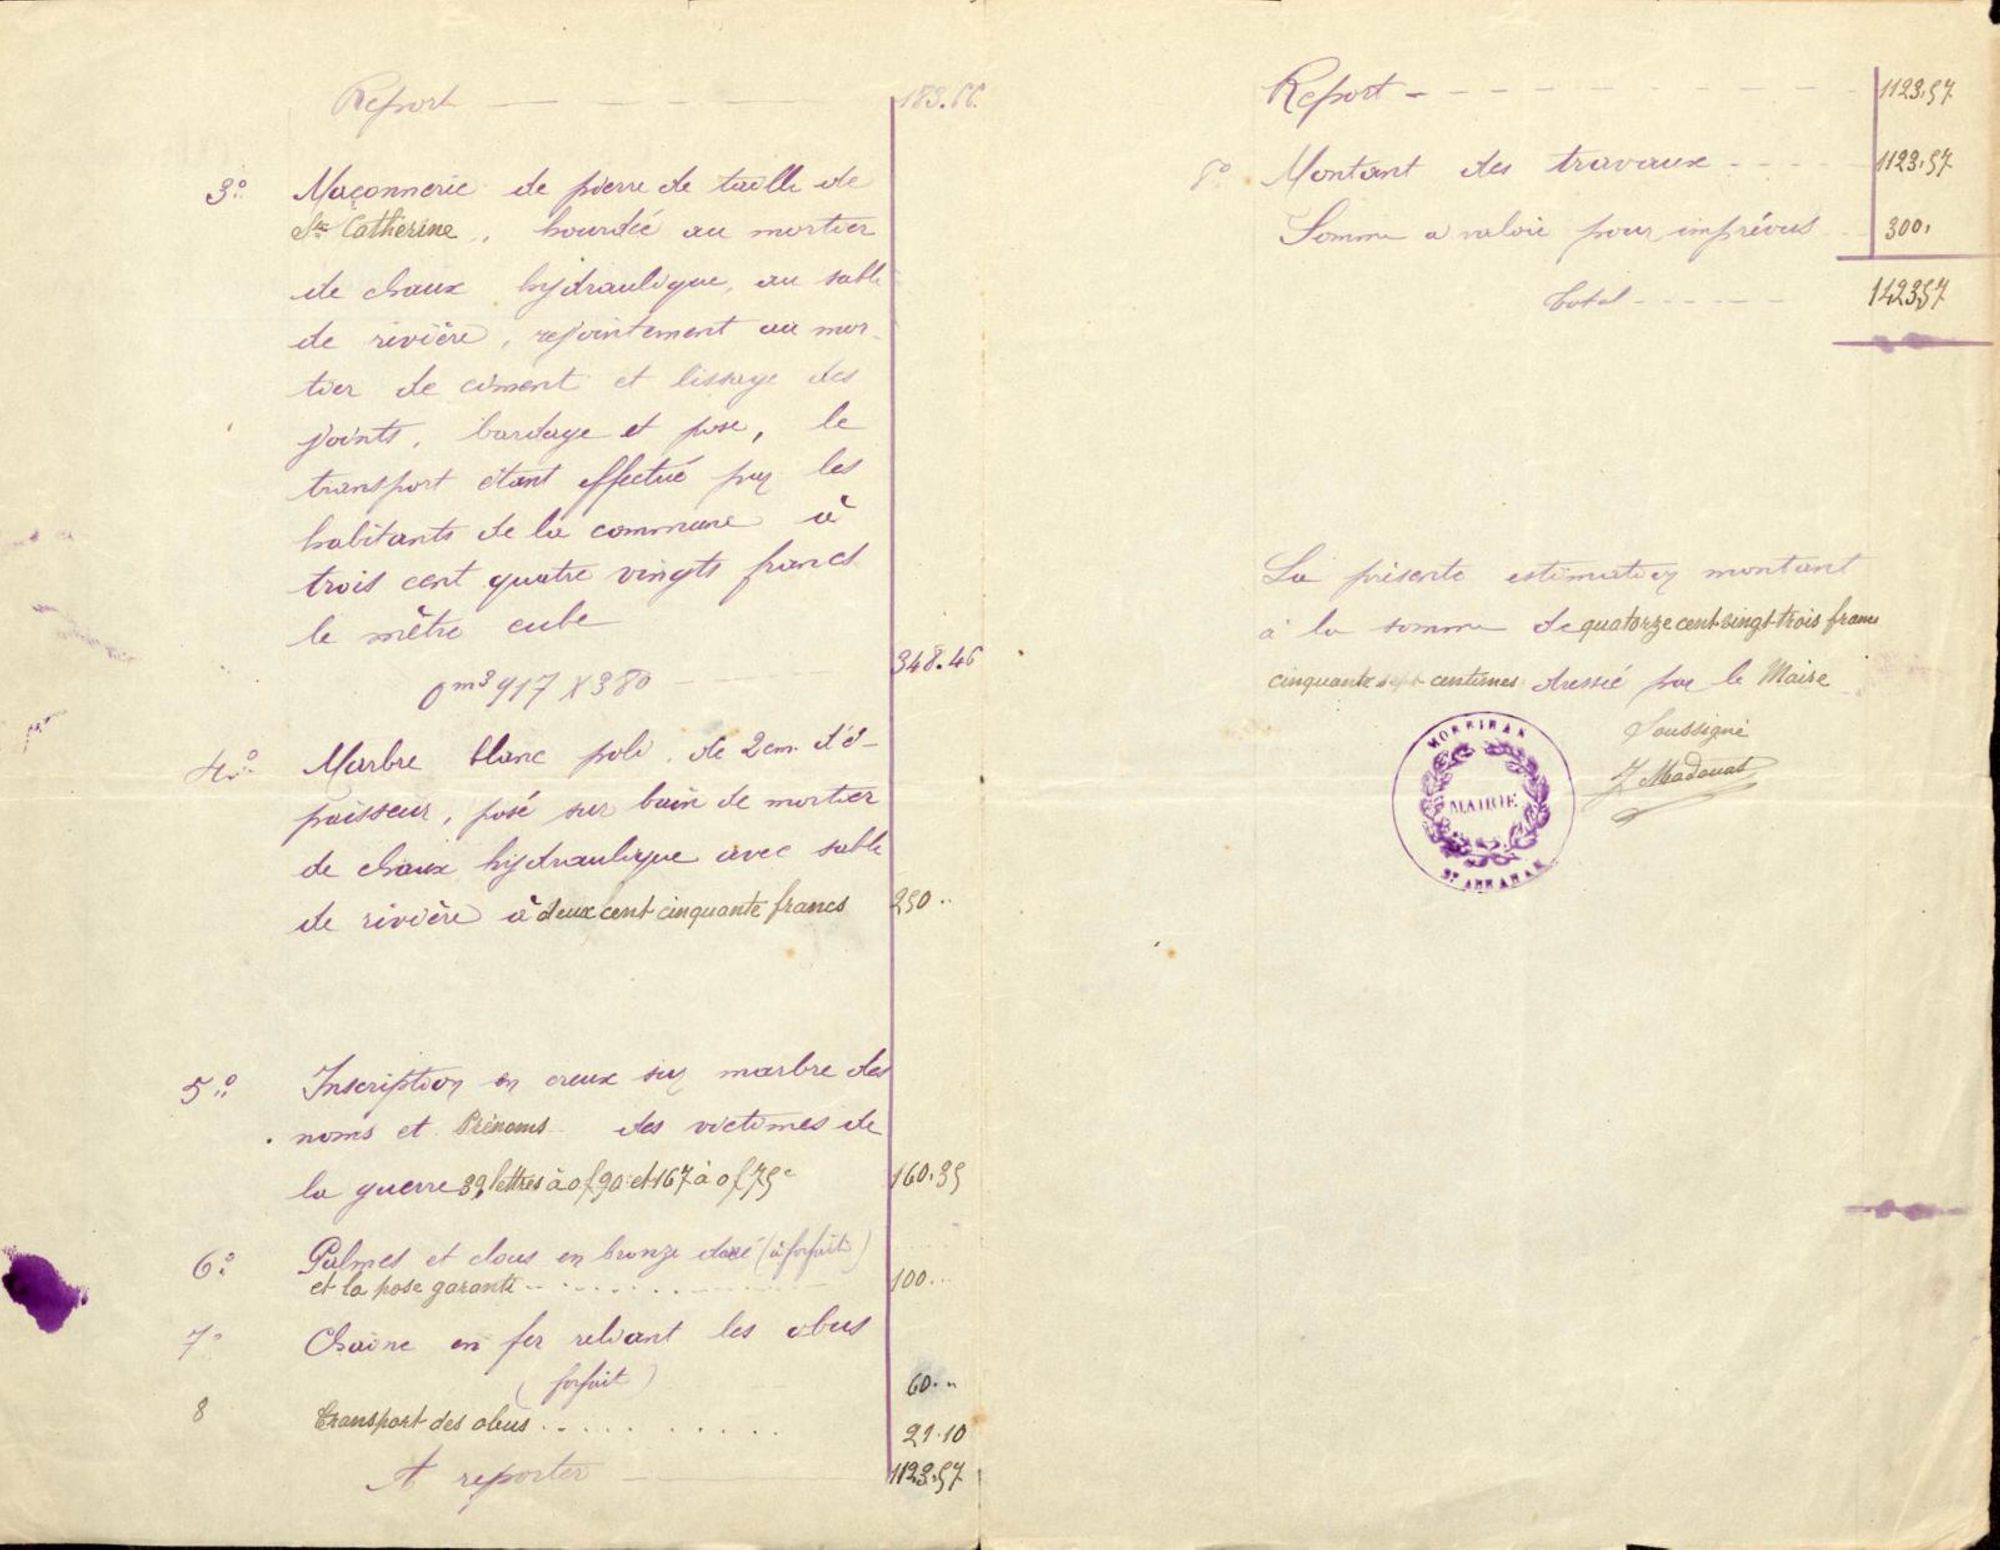 Report 183.66
3° Maçonnerie de pierre de taille de
Ste Catherine, hourdée au mortier
de chaux hydraulique, au sable
de rivière, rejointement au mor-
tier de ciment et lissage des
joints, bardage et pose, le
transport étant effectué par les
habitants de la commune à
trois cent quatre vingts francs
le mètre cube
0m3 917 x 380 348.46
4° Marbre blanc poli, de 2cm d'é-
paisseur, posé sur bain de mortier
de chaux hydraulique avec sable
de rivière à deux cent cinquante francs 250..
5° Inscription en creux sur marbre des
noms et Prénoms des victimes de
la guerre 39 lettres à 0f90 et 167 à 0f75c 160.35
6° Palmes et clous en bronze doré (à forfait)
et la pose garantie 100...
7° Chaîne en fer reliant les obus
(forfait) 60..
8 Transport des obus 21.10
A reporter 1123.57
Report 1123,57
8° Montant des travaux 1123,57
Somme a valoir pour imprévus 300,
Total 1423,57
La présente estimation montant
à la somme de quatorze cent vingt-trois francs
cinquante sept centimes dressée par le Maire
Soussigné
J Madouas
MORBIHAN
MAIRIE
ST ABRAHAM